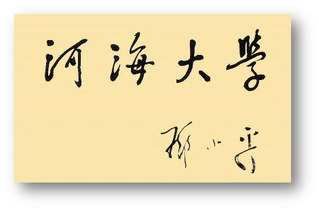 河海大學
邓小平